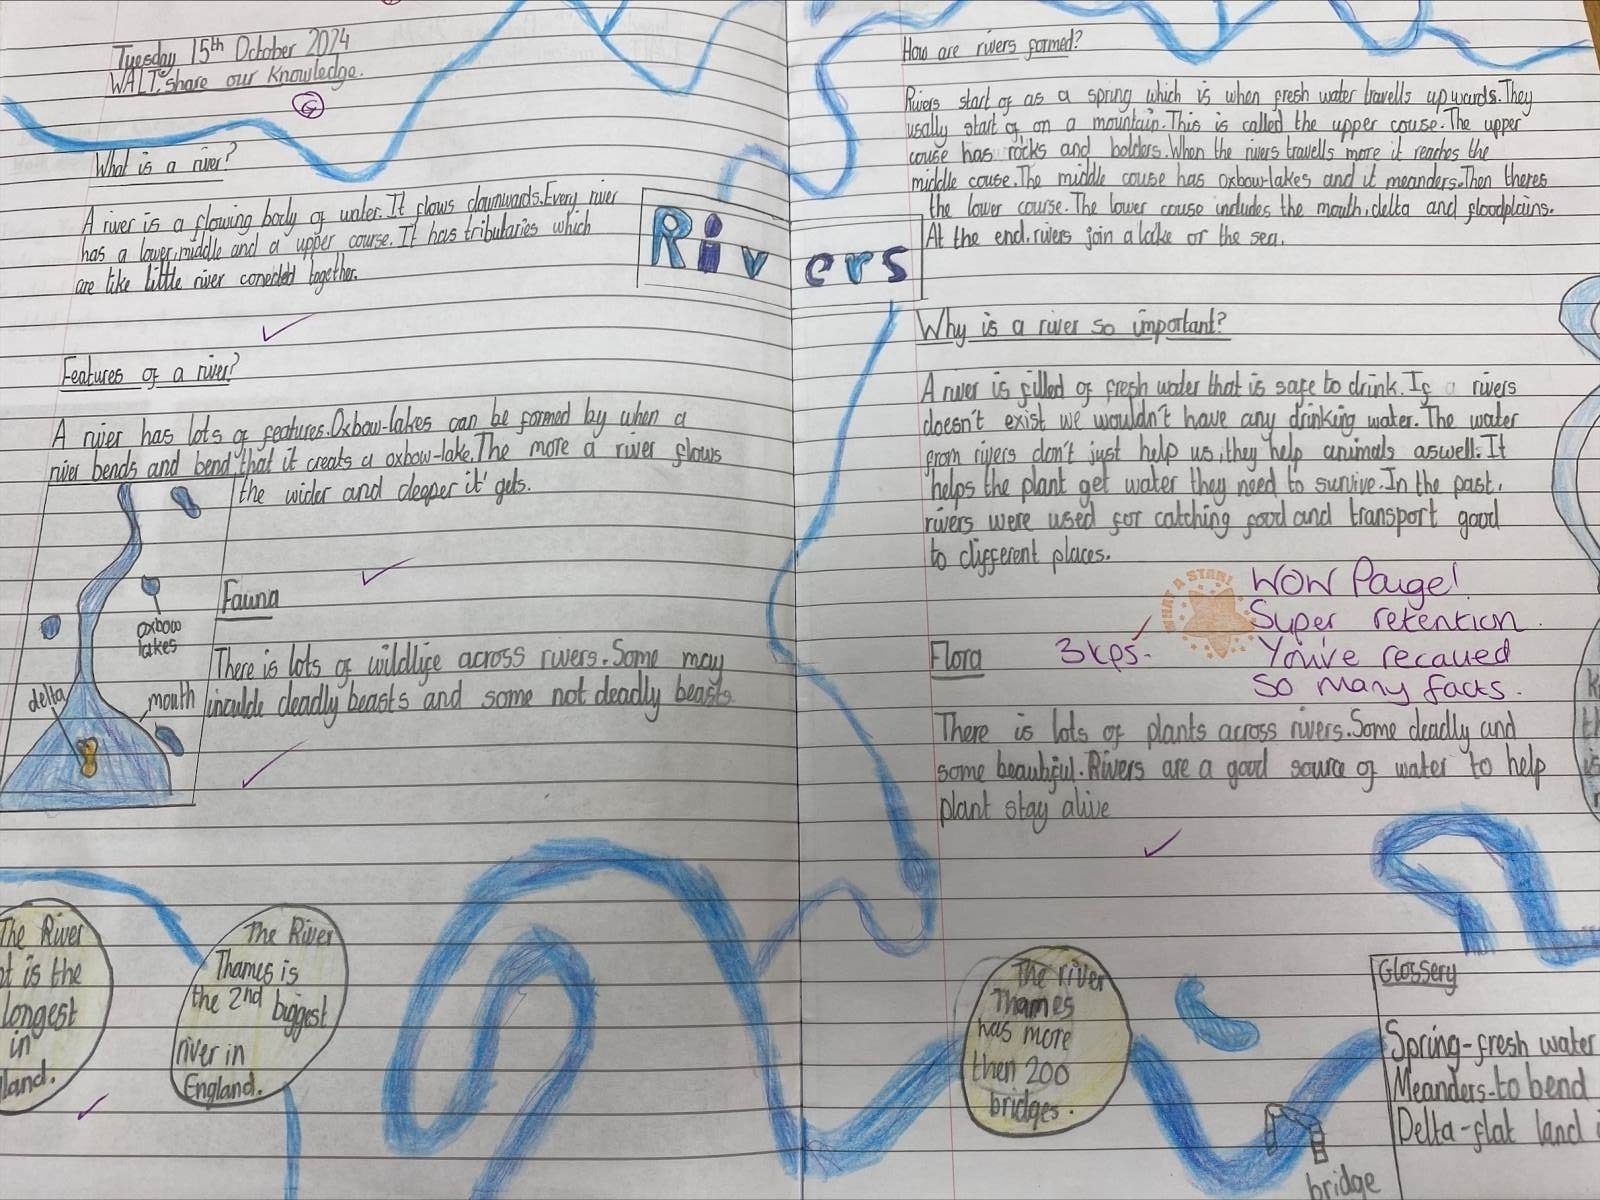 Tuesday 15th October 2024
WALT: share our knowledge.
G
What is a river?
A river is a flowing body of water. It flows downwards. Every river
has a lower, middle and a upper course. It has tributaries which
are like little river conected together.
Features of a river?
A river has lots of features. Oxbow-lakes can be formed by when a
river bends and bend that it creats a oxbow-lake. The more a river flows
the wider and deeper it gets.
oxbow
lakes
delta
mouth
Fauna
There is lots of wildlife across rivers. Some may
inculde deadly beasts and some not deadly beasts.
The River
is the
longest
in
land.
The River
Thames is
the 2nd biggest
river in
England.
Rivers
How are rivers formed?
Rivers start of as a spring which is when fresh water travells upwards. They
usally start of on a mountain. This is called the upper couse. The upper
couse has rocks and bolders. When the rivers travells more it reaches the
middle couse. The middle couse has oxbow-lakes and it meanders. Then theres
the lower course. The lower couse includes the mouth, delta and floodplains.
At the end, rivers join a lake or the sea.
Why is a river so important?
A river is filled of fresh water that is safe to drink. If a rivers
doesn't exist we wouldn't have any drinking water. The water
from rivers don't just help us, they help animals aswell. It
helps the plant get water they need to survive. In the past,
rivers were used for catching food and transport good
to different places.
WHAT A STAR!
WOW Paige!
Super retention.
You've recalled
so many facts.
3kps.
Flora
There is lots of plants across rivers. Some deadly and
some beautiful. Rivers are a good source of water to help
plant stay alive
The river
Thames
has more
then 200
bridges.
bridge
Glossery
Spring-fresh water
Meanders-to bend
Delta-flat land